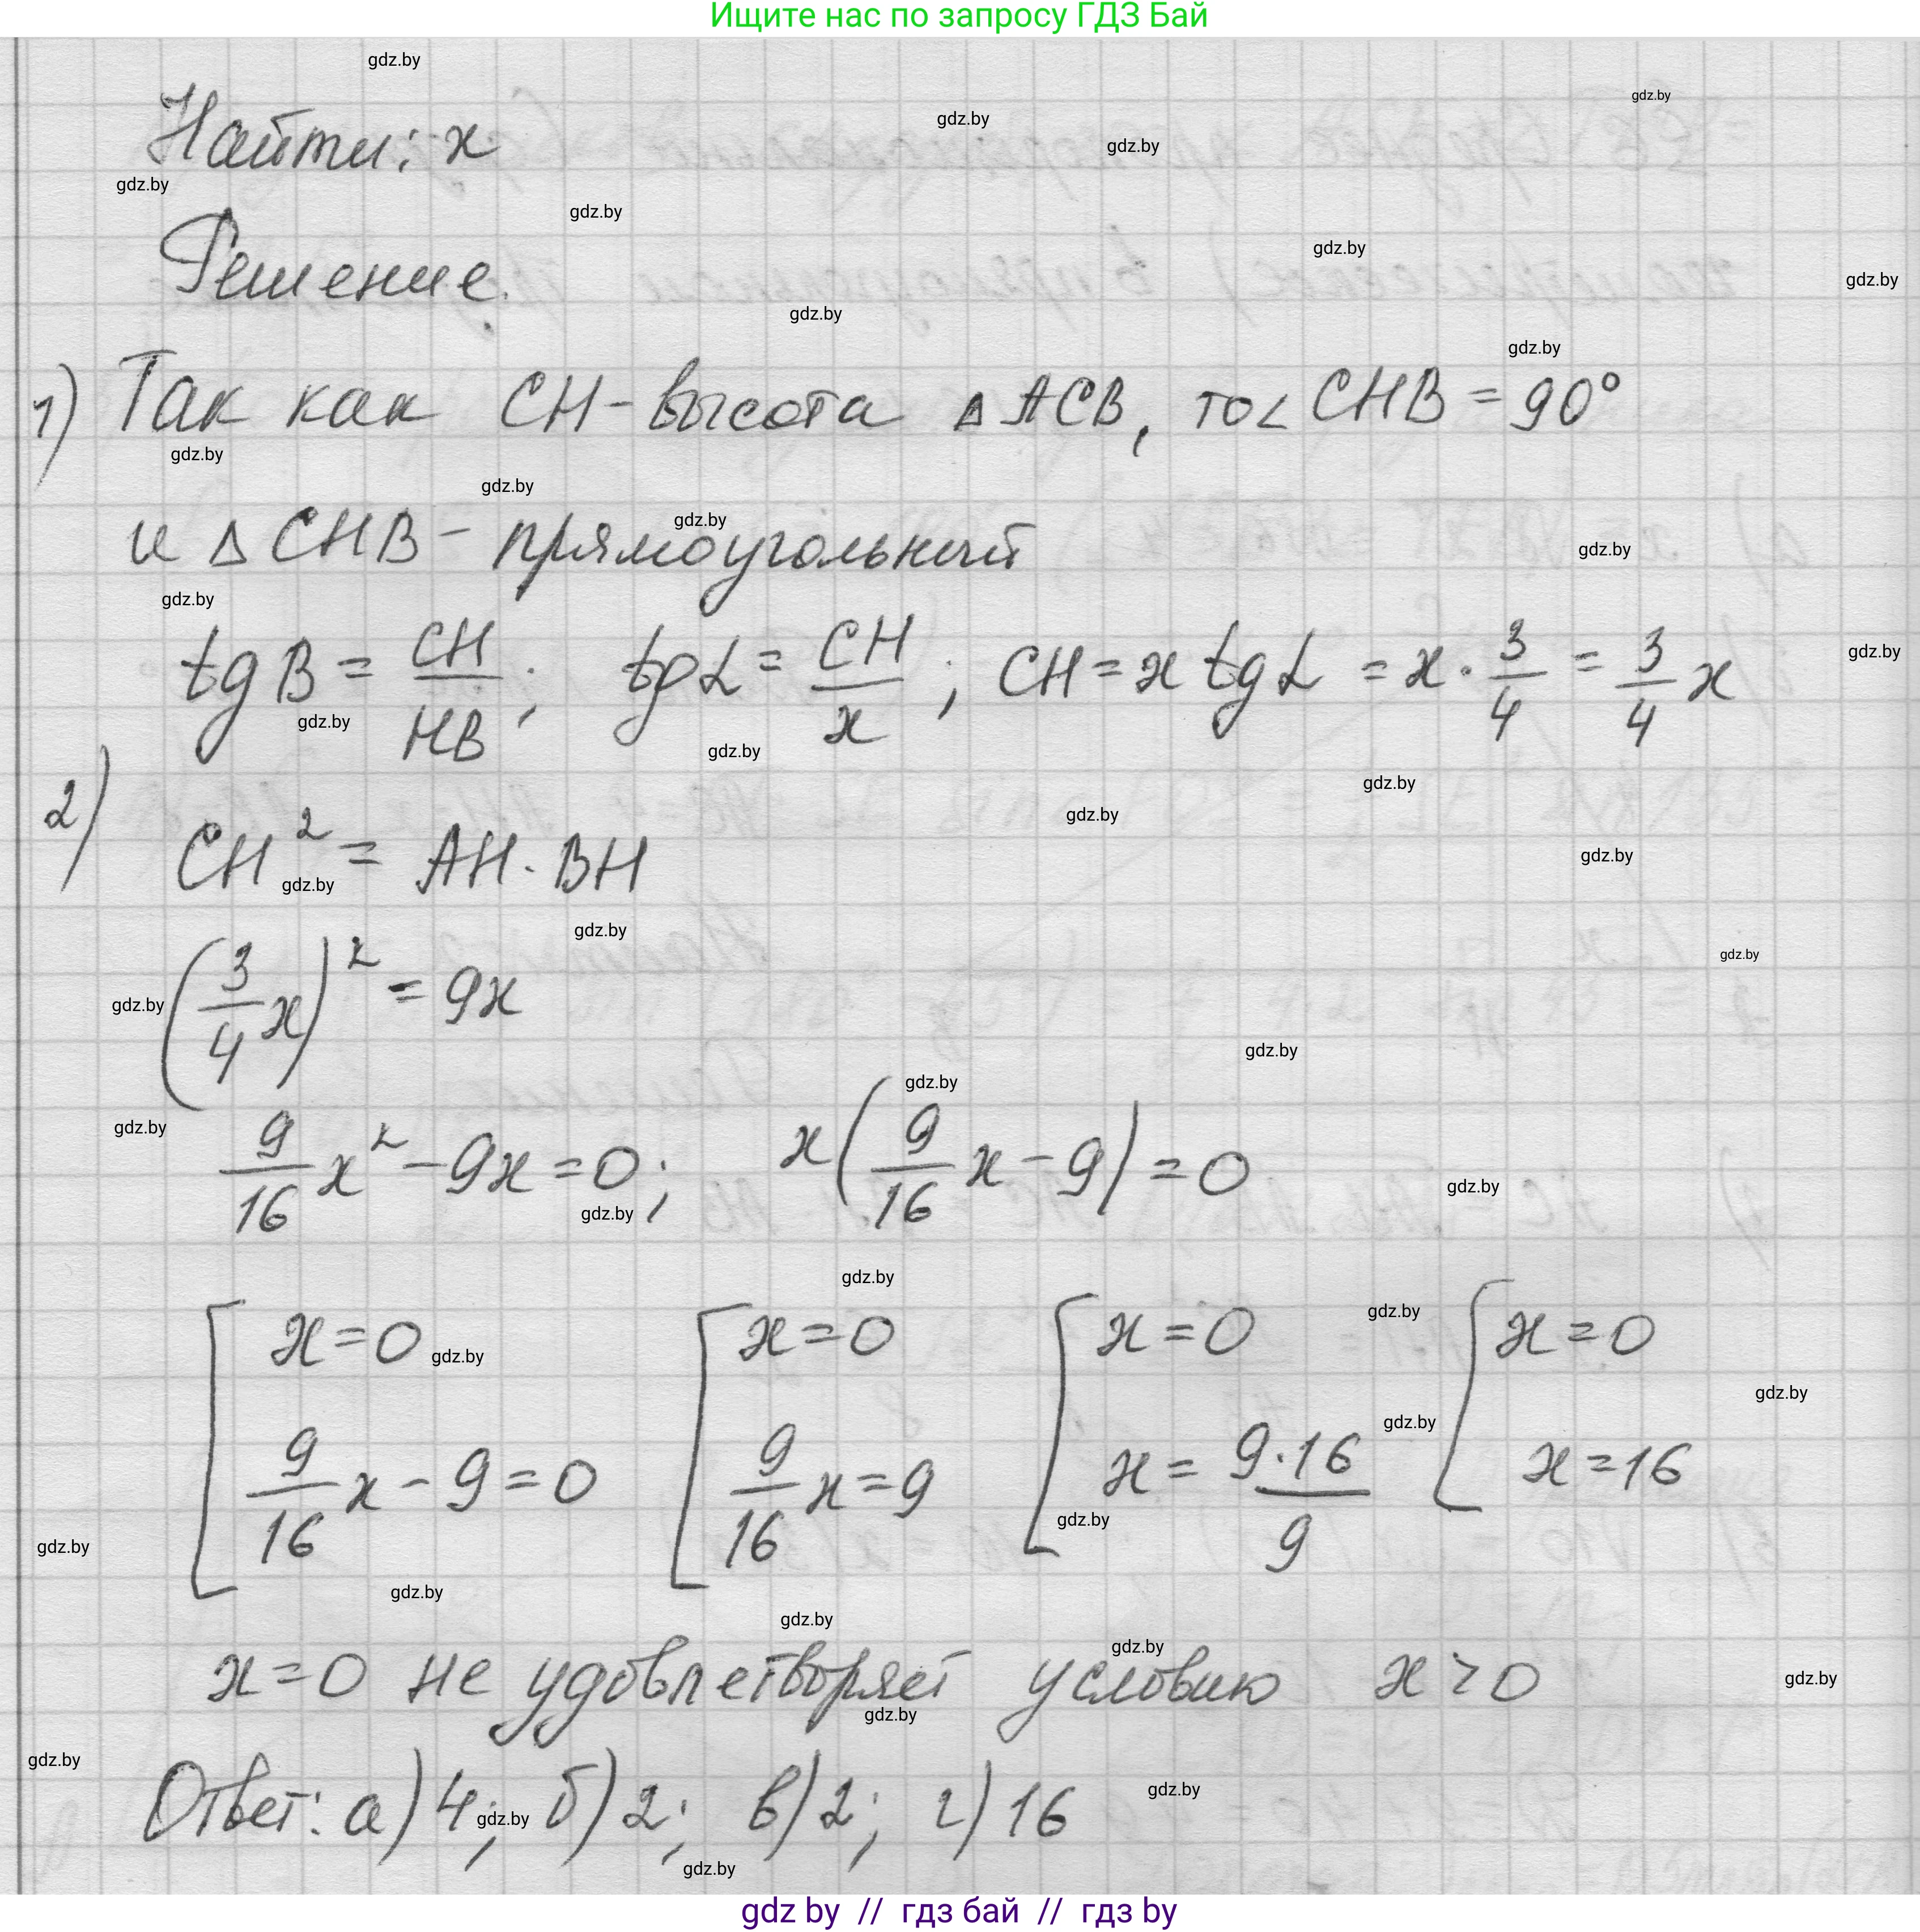 Ищите нас по запросу ГДЗ Бай
Найти: x
Решение.
1) Так как CH - высота △ ACB, то ∠ CHB = 90°
и △ CHB - прямоугольный
tg B = CH/HB; tg α = CH/x; CH = x tg α = x · 3/4 = 3/4 x
2) CH² = AH · BH
(3/4 x)² = 9x
9/16 x² - 9x = 0; x(9/16 x - 9) = 0
[ x = 0 [ x = 0 [ x = 0 [ x = 0
9/16 x - 9 = 0 9/16 x = 9 x = 9·16/9 x = 16
x = 0 не удовлетворяет условию x > 0
Ответ: а) 4; б) 2; в) 2; г) 16
gdz by // гдз бай // гдз by